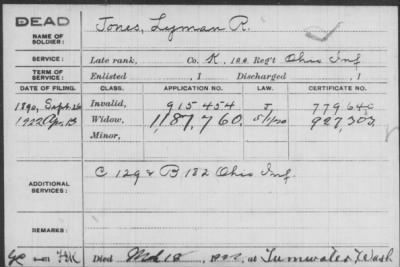 DEAD
NAME OF SOLDIER: Jones, Lyman R.
SERVICE: Late rank, Co. K, 122 Reg't Ohio Inf
TERM OF SERVICE: Enlisted , 1 Discharged , 1
DATE OF FILING. CLASS. APPLICATION NO. LAW. CERTIFICATE NO.
1890, Sept. 26 Invalid, 915 454 J, 779 640
1922 Apr. 13 Widow, 1,187,760. 5/1/20 927,303.
Minor,
ADDITIONAL SERVICES: C 129 & B 182 Ohio Inf.
REMARKS:
Died Mch 18, 1922, at Tumwater, Wash